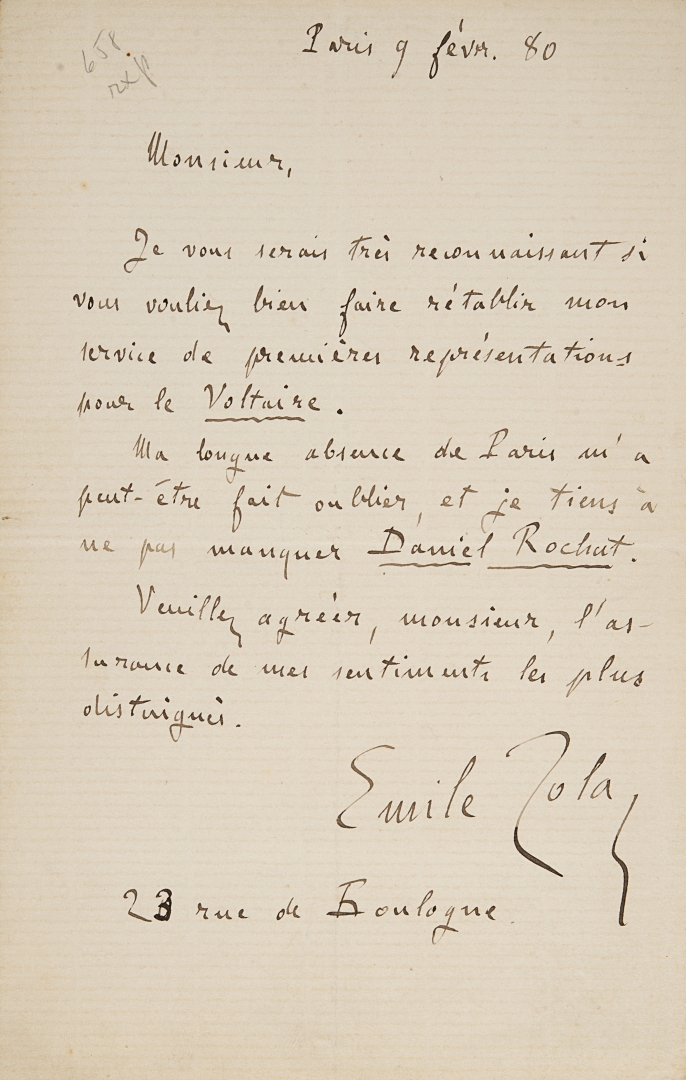 658
Paris 9 févr. 80
Monsieur,
Je vous serais très reconnaissant si
vous vouliez bien faire rétablir mon
service de premières représentations
pour le Voltaire.
Ma longue absence de Paris m'a
peut-être fait oublier, et je tiens à
ne pas manquer Daniel Rochat.
Veuillez agréer, monsieur, l'as-
surance de mes sentiments les plus
distingués.
Emile Zola
23 rue de Boulogne